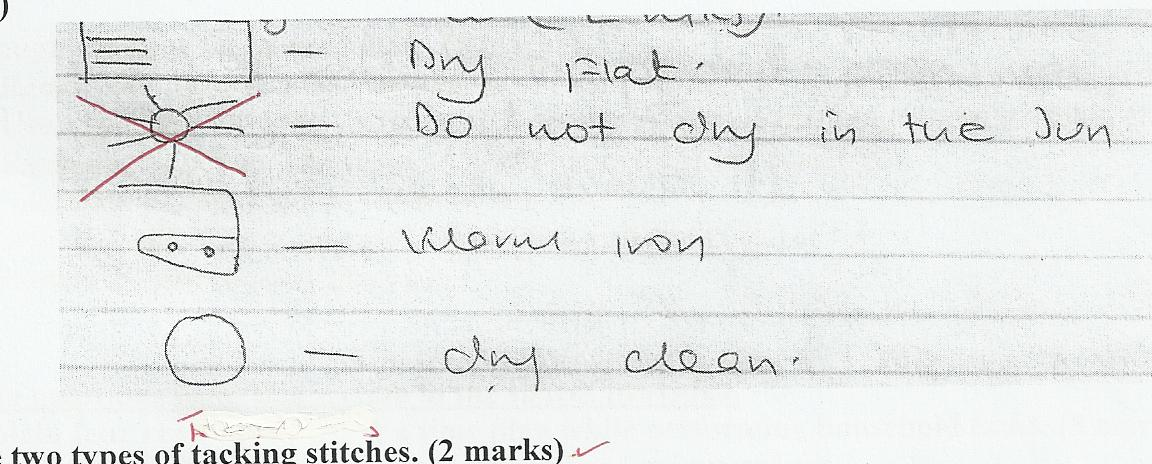 )
— Dry Flat.
— Do not dry in the sun
— Warm iron
— dry clean.
two types of tacking stitches. (2 marks)